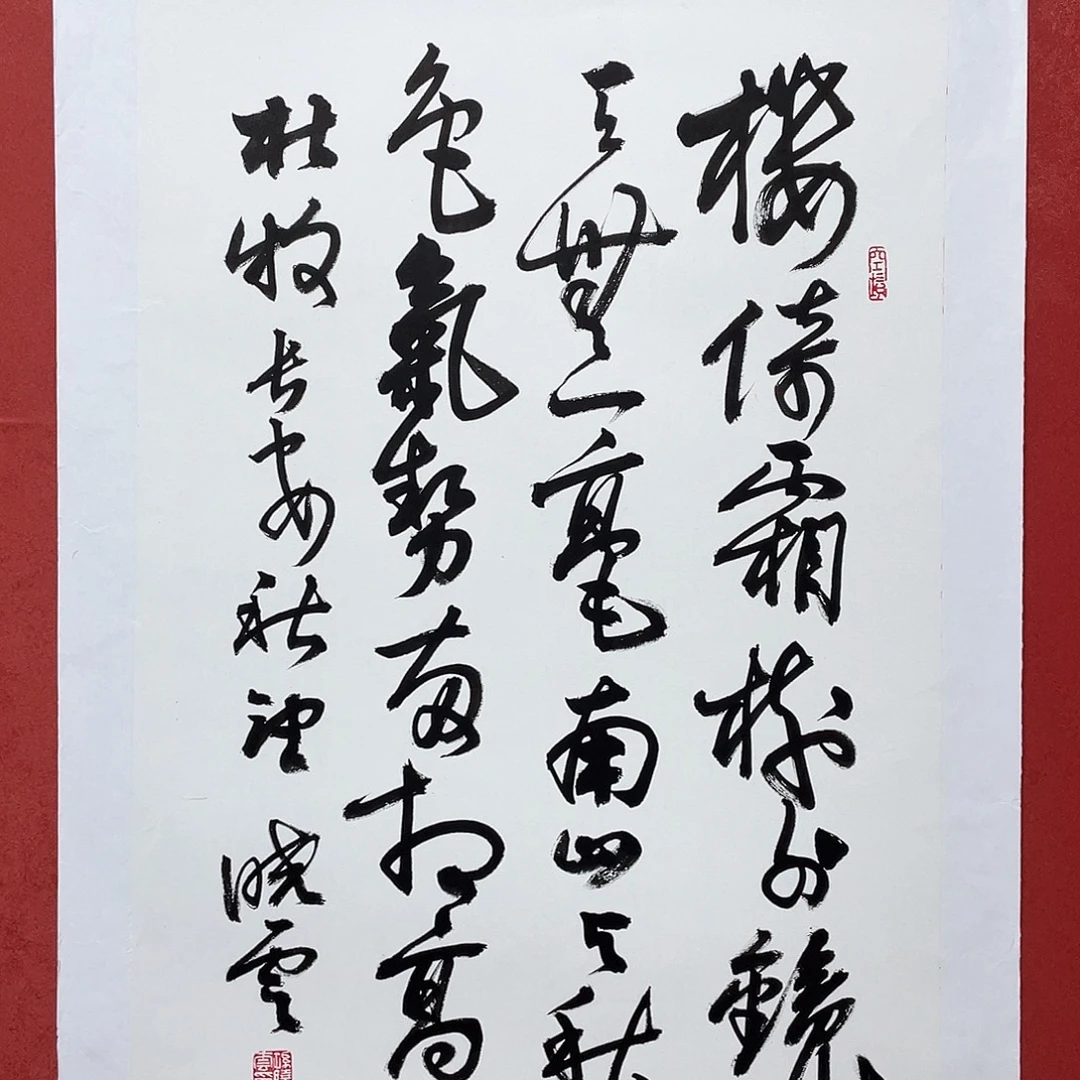 樓倚霜樹外鏡
天無一毫南山與秋
色氣勢兩相高
杜牧長安秋望 曉雲